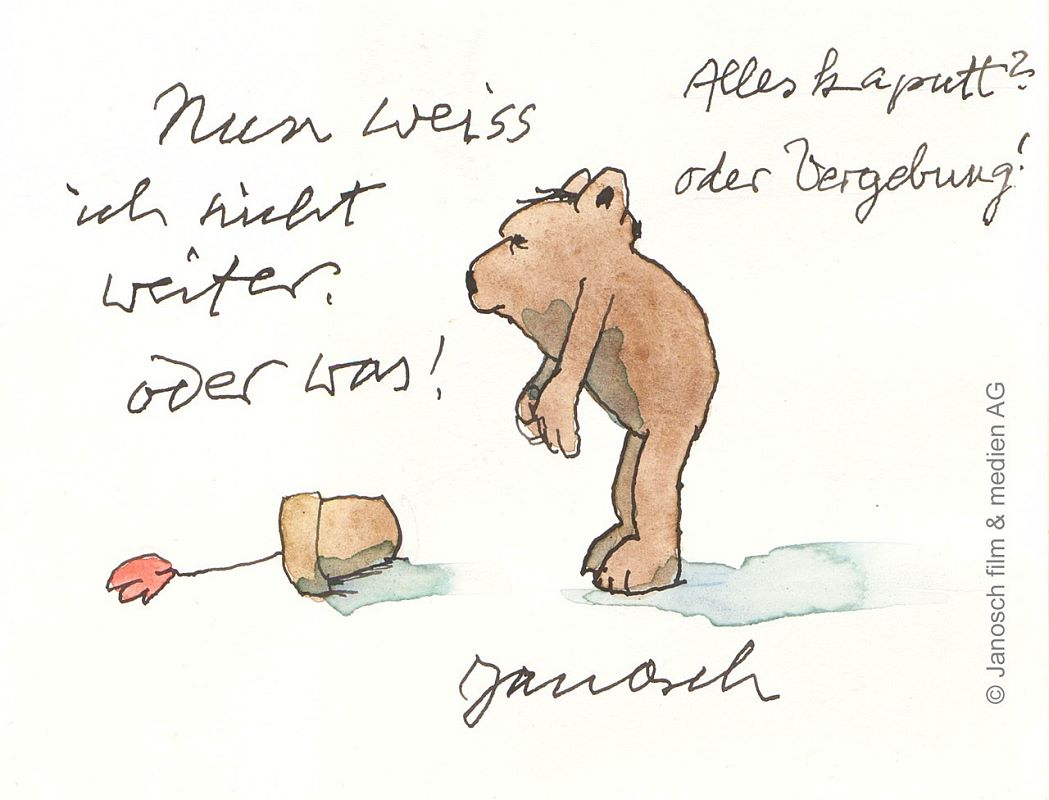 Nun weiss
ich nicht
weiter.
oder was!
Alles kaputt?
oder Vergebung!
Janosch
© Janosch film & medien AG